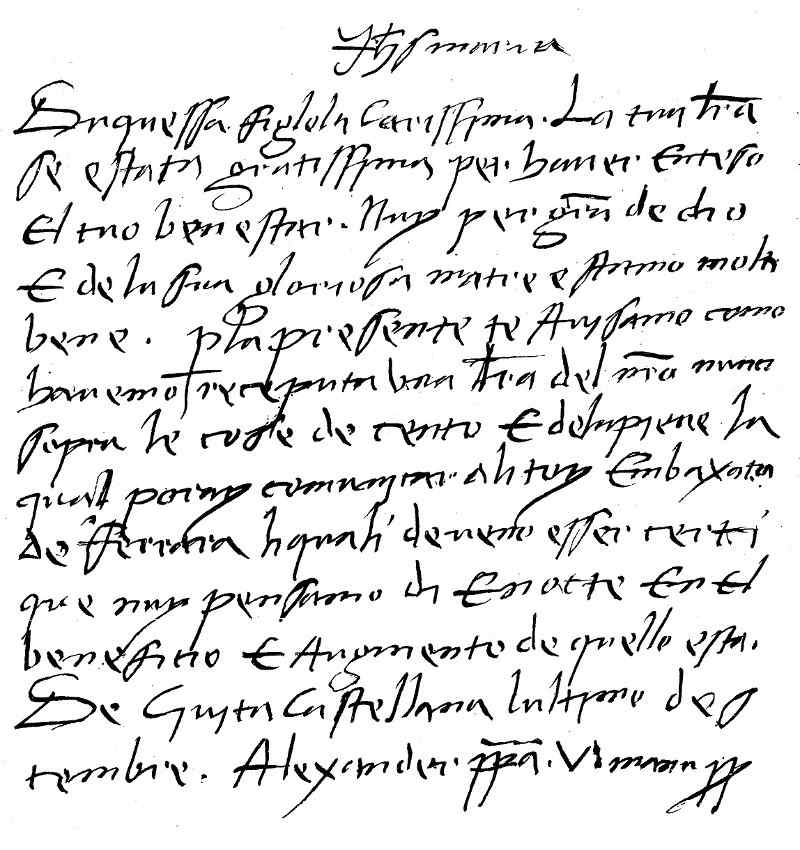 Jhs maria
Duquessa figlola Carissima. La tua lra
se estata gratissima per haver Enteso
El tuo ben estar. Nuy per gra de dio
E de la sua gloriosa matre e stamo molto
bene. pla presente te Avisamo como
havemo receputa una lra del nro nunci
sopra le cose de cento E dela pieve la
qual poray comunicar ali toy Embaxatu
de ferrara li quali deveno esser certi
que nuy pensamo di E notte En El
beneficio E Augmento de quello esta.
De Civita Castellana lultimo de s
tembre. Alexander ppa. VI manu pp